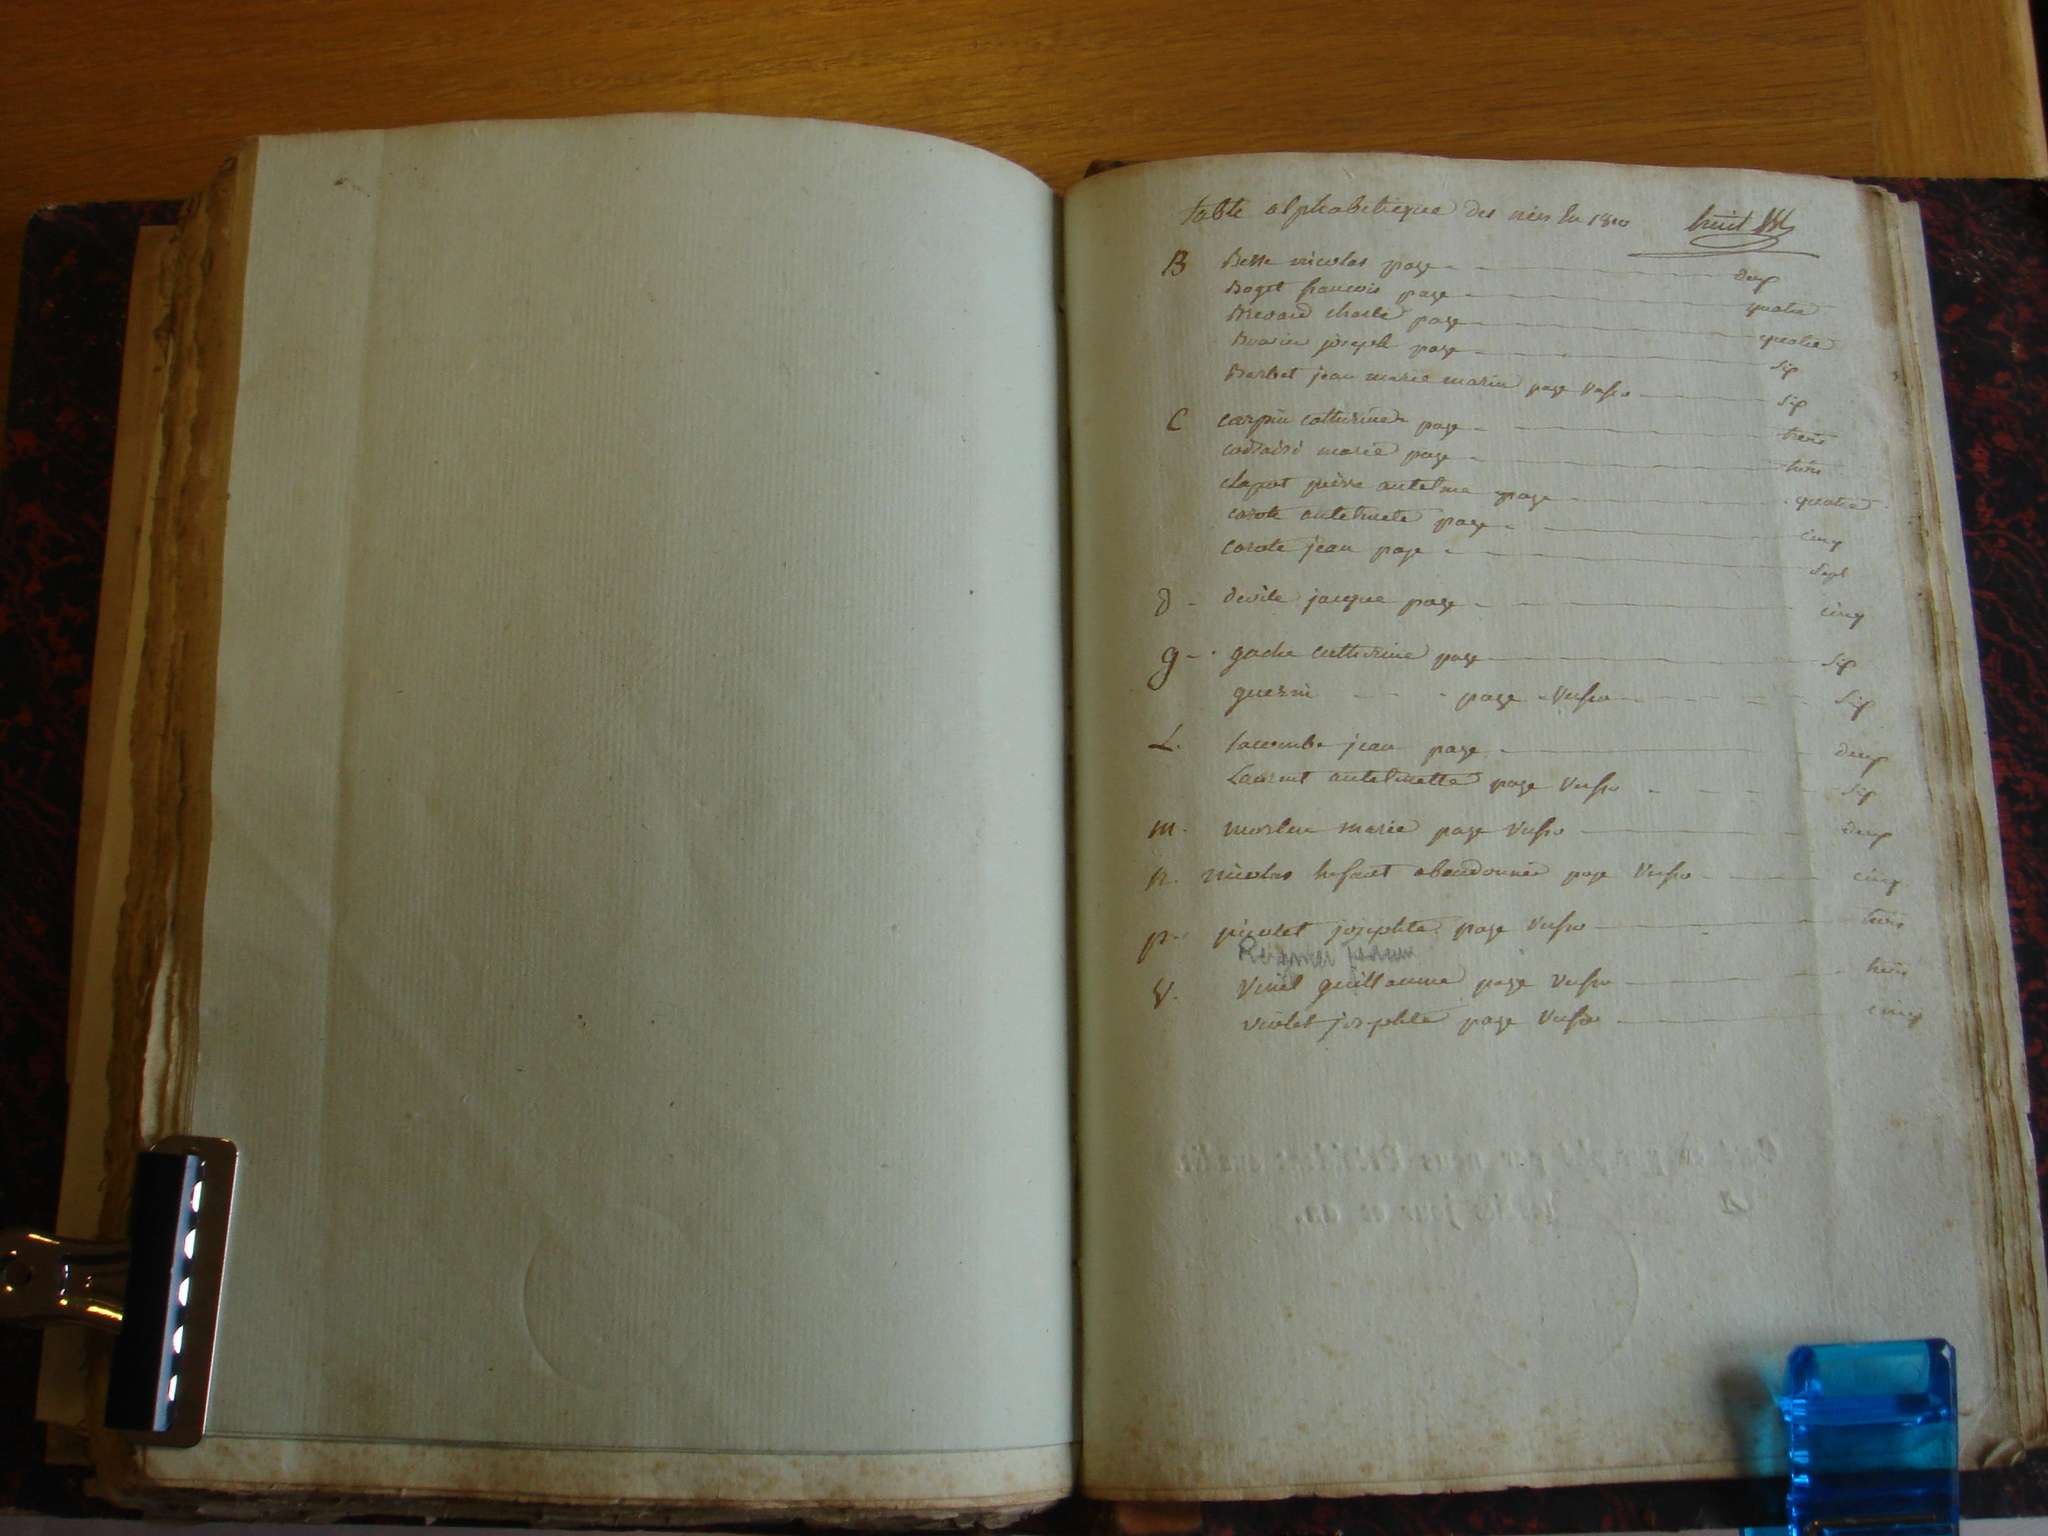 table alphabetique des nés en 1810 huit
B Besse nicolas page deux
Boget francois page quatre
Brevard charle page quatre
joseph page six
Barbet jean marie marin page Verso six
C carpin catherine page trois
marie page trois
clapot pierre antelme page quatre
carote antelmete page cinq
carote jean page sept
D devile jacque page cinq
g gache catherine page six
guerni page Verso six
L. lacombe jean page deux
Laurent antelmette page Verso six
m. marie page Verso deux
n. nicolas enfant abandonné page Verso cinq
p. picolet josephte page Verso trois
V. guillaume page Verso trois
violet josephte page Verso cinq